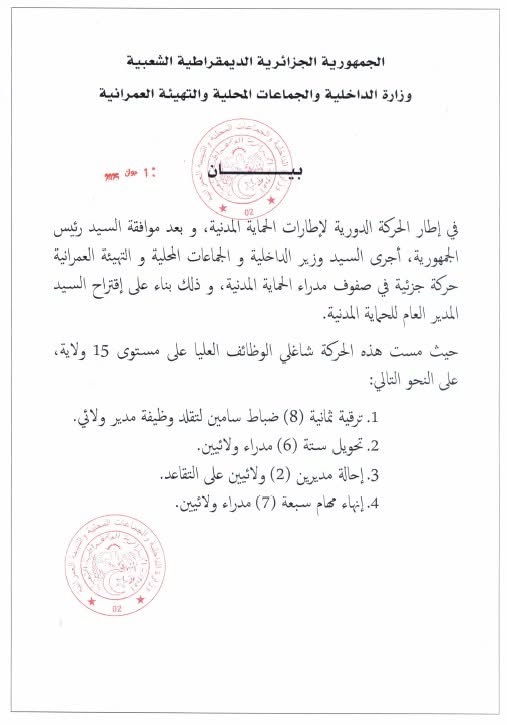 الجمهورية الجزائرية الديمقراطية الشعبية
وزارة الداخلية والجماعات المحلية والتهيئة العمرانية
بيــــــــان
1 جوان 2025
02
في إطار الحركة الدورية لإطارات الحماية المدنية، و بعد موافقة السيد رئيس
الجمهورية، أجرى السيد وزير الداخلية و الجماعات المحلية و التهيئة العمرانية
حركة جزئية في صفوف مدراء الحماية المدنية، و ذلك بناء على إقتراح السيد
المدير العام للحماية المدنية.
حيث مست هذه الحركة شاغلي الوظائف العليا على مستوى 15 ولاية،
على النحو التالي:
1. ترقية ثمانية (8) ضباط سامين لتقلد وظيفة مدير ولائي.
2. تحويل ستة (6) مدراء ولائيين.
3. إحالة مديرين (2) ولائيين على التقاعد.
4. إنهاء مهام سبعة (7) مدراء ولائيين.
02